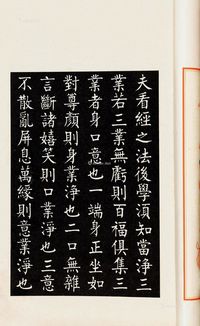 夫看經之法後學須知當淨三
業若三業無虧則百福俱集三
業者身口意也一端身正坐如
對尊顏則身業淨也二口無雜
言斷諸嬉笑則口業淨也三意
不散亂屏息萬緣則意業淨也